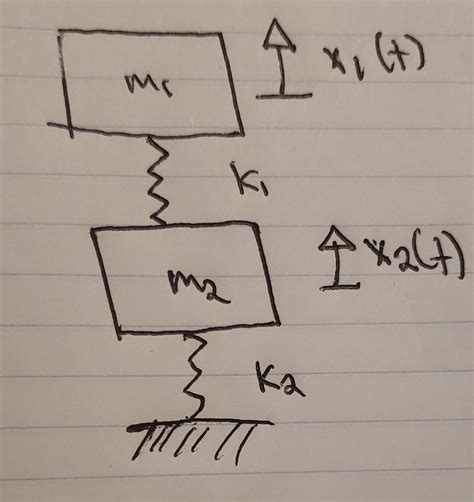 m₁
x₁(t)
K₁
m₂
x₂(t)
K₂